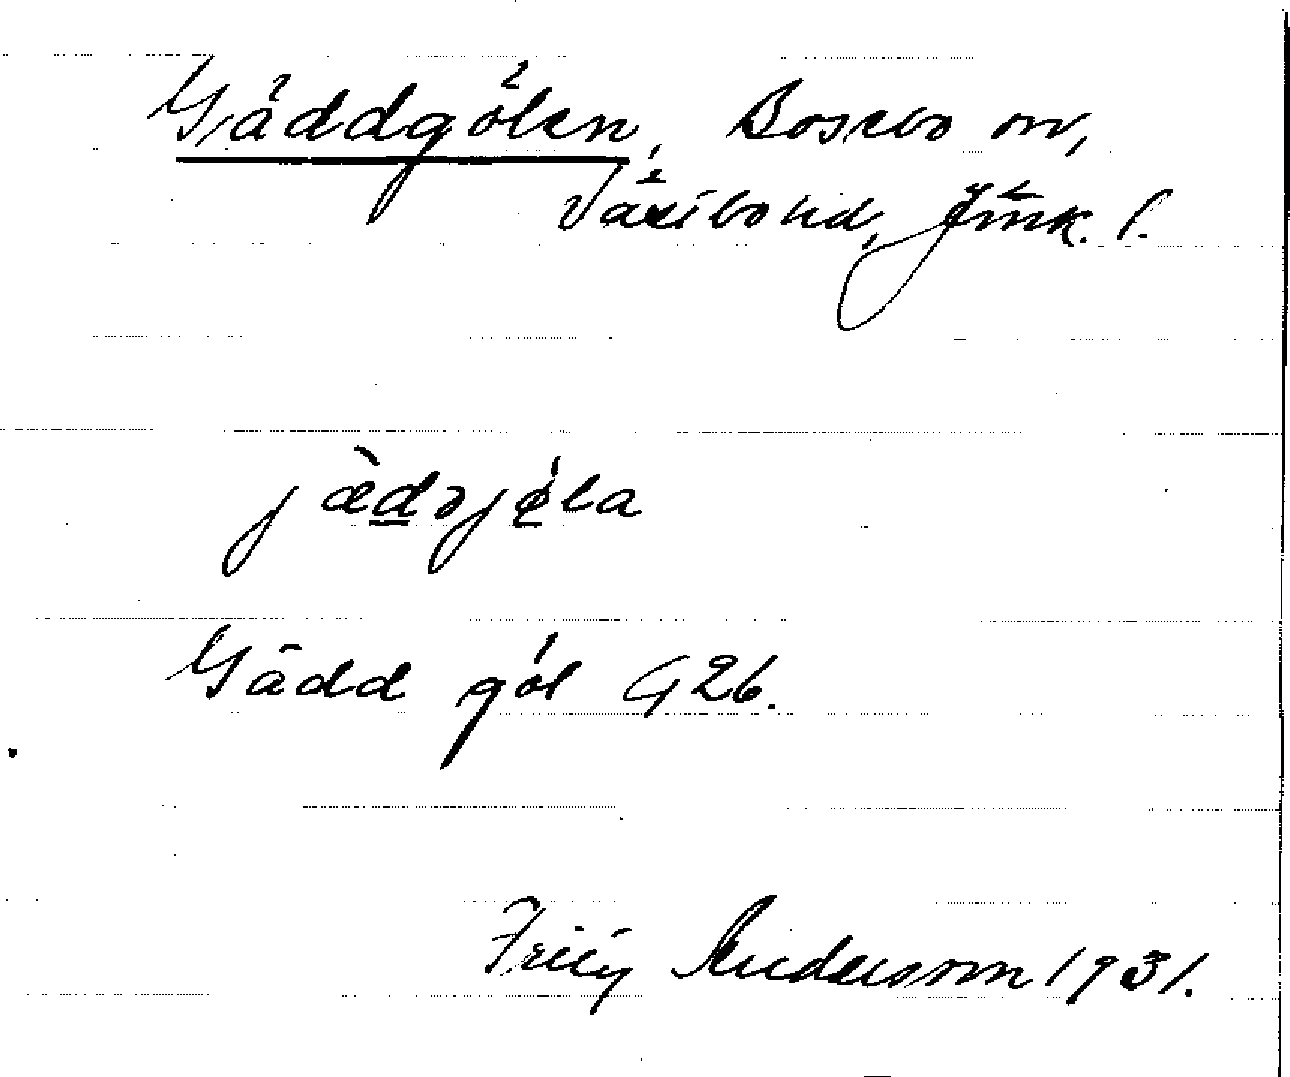 Gäddgölen, Bosebo sn,
Västbo hd, Jönk. l.
jædəjøla
Gädd göl G26.
Andersson 1931.